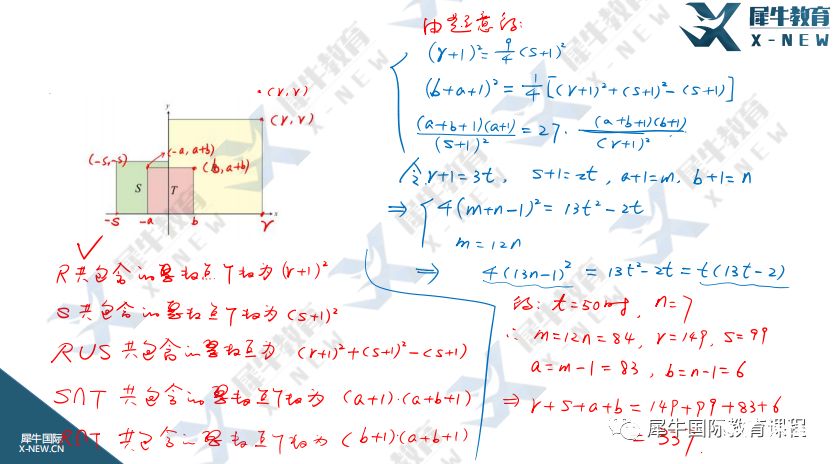 犀牛教育
X-NEW
由题意知:
(r+1)²= 9/4 (s+1)²
(b+a+1)² = 1/4 [(r+1)²+(s+1)²-(s+1)]
(a+b+1)(a+1)/(s+1)² = 27 · (a+b+1)(b+1)/(r+1)²
令 r+1=3t, s+1=2t, a+1=m, b+1=n
⇒ 4(m+n-1)² = 13t²-2t
m=12n
⇒ 4(13n-1)² = 13t²-2t = t(13t-2)
(r, r)
(r, r)
y
(-a, a+b)
(-s, s)
(b, a+b)
S
T
-s
-a
b
r
x
R共包含的整格点个数为 (r+1)²
S共包含的整格点个数为 (s+1)²
R∪S 共包含的整格点为 (r+1)²+(s+1)²-(s+1)
S∩T 共包含的整格点个数为 (a+1)·(a+b+1)
R∩T 共包含的整格点个数为 (b+1)·(a+b+1)
t=50时, n=7
∴ m=12n=84, r=149, s=99
a=m-1=83, b=n-1=6
⇒ r+s+a+b = 149+99+83+6
=337.
犀牛国际
X-NEW.CN
犀牛国际教育课程